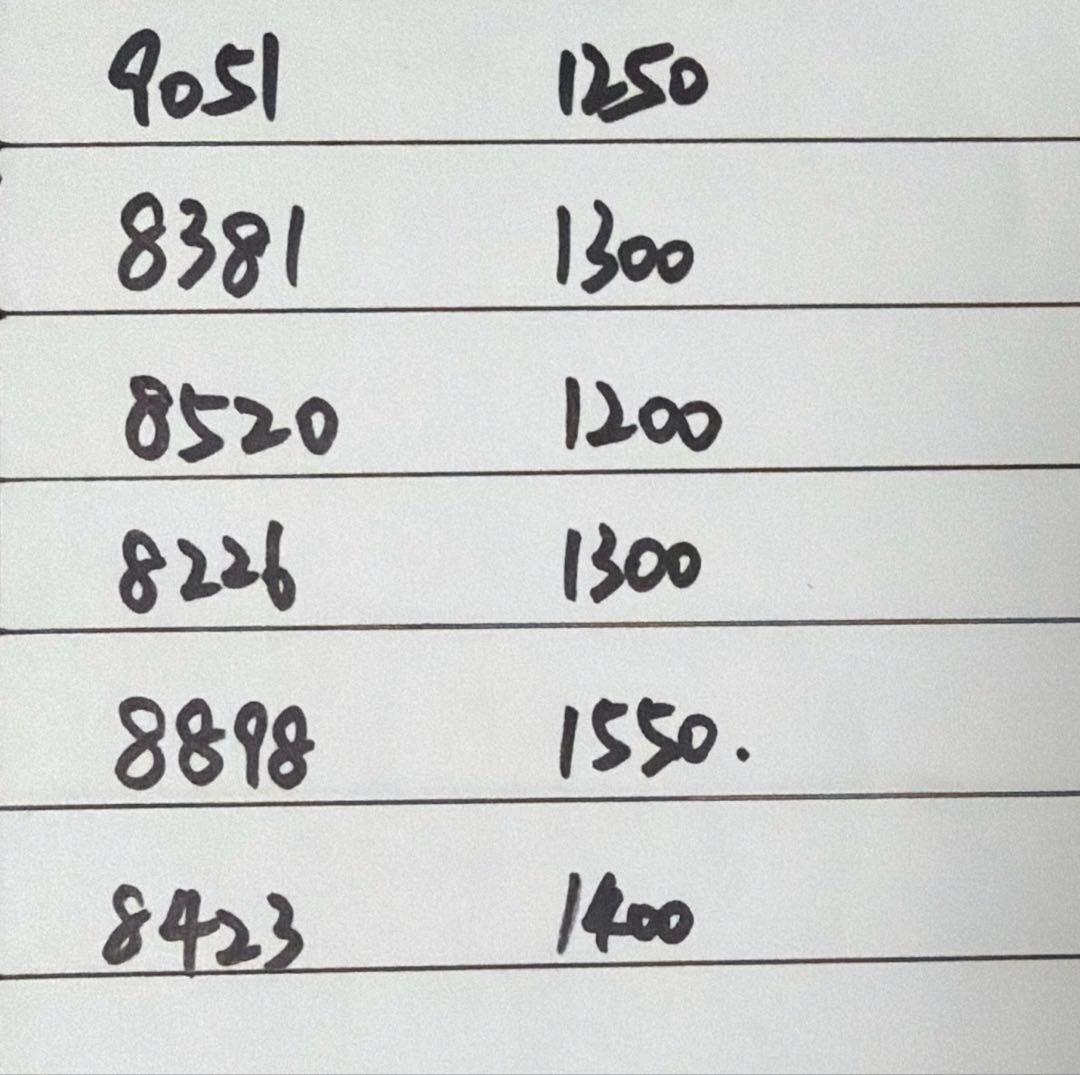 9051 1250
8381 1300
8520 1200
8226 1300
8898 1550.
8423 1400